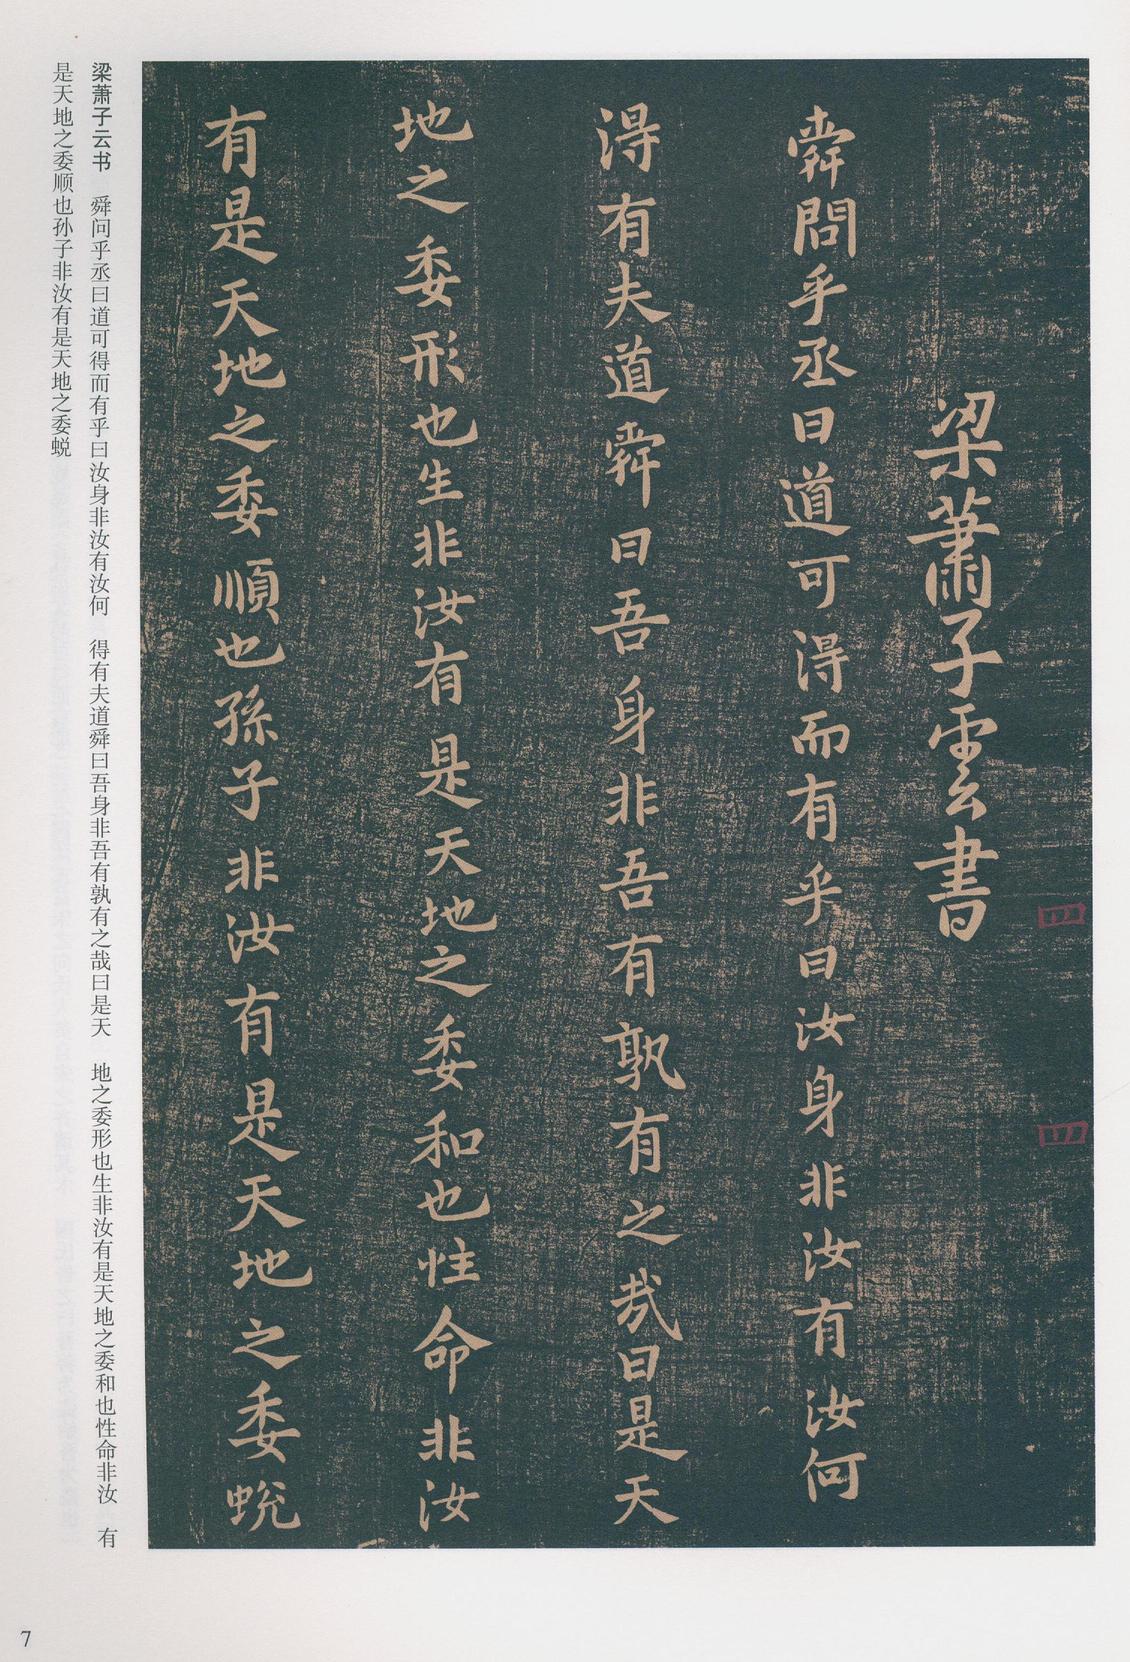 梁蕭子雲書
舜問乎丞曰道可得而有乎曰汝身非汝有汝何
得有夫道舜曰吾身非吾有孰有之哉曰是天
地之委形也生非汝有是天地之委和也性命非汝
有是天地之委順也孫子非汝有是天地之委蜕
四
四
梁萧子云书 舜问乎丞曰道可得而有乎曰汝身非汝有汝何 得有夫道舜曰吾身非吾有孰有之哉曰是天 地之委形也生非汝有是天地之委和也性命非汝 有
是天地之委顺也孙子非汝有是天地之委蜕
7